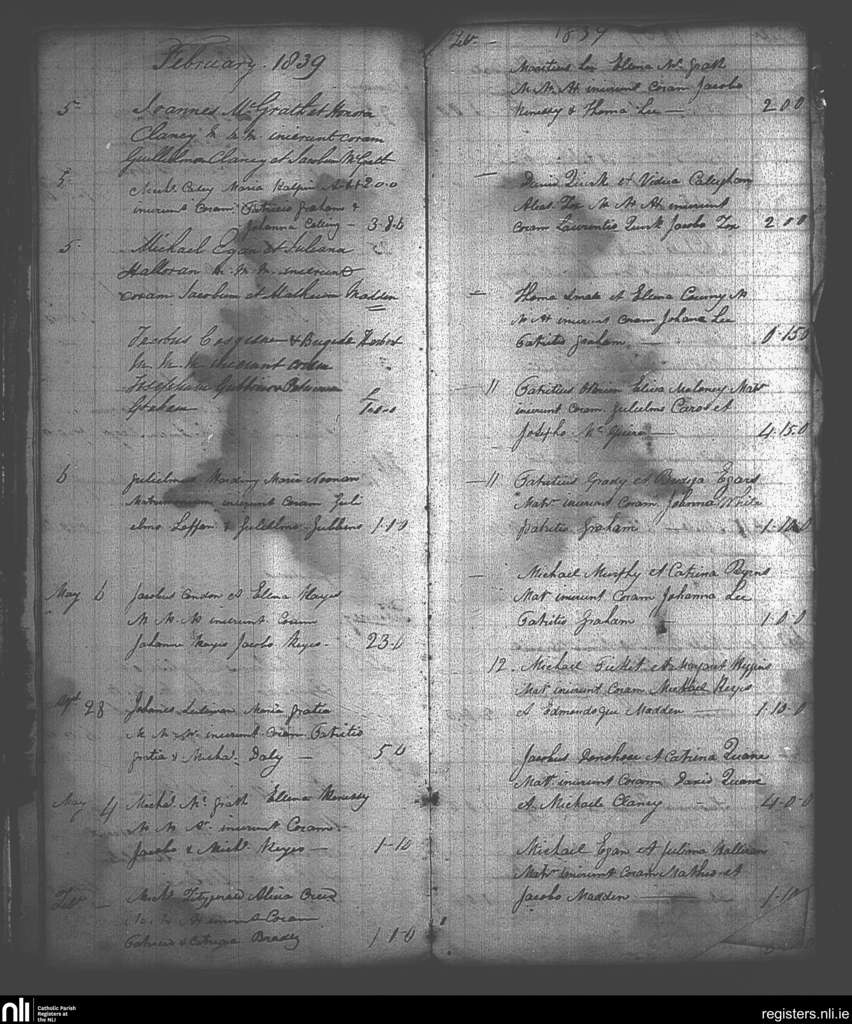 February. 1839
5 Joannes McGrath et Honora
Clancy M M M inierunt coram
Guillelmum Clancy et Jacobum McGrath
5 Michl. Maria Halpin 2-0-0
inierunt Coram Patricio Graham &
Johanna 3-8-0
5. Michael Egan et Juliana
Halloran M. M. M. inierunt
coram Jacobum et Matheum Madden
Jacobus & Brigida Herbert
M. M. M. inierunt coram
Josephum Gubbins &
Graham £1-0-0
6 Gulielmus Harding Maria Noonan
Matrimonium inierunt Coram Guli
elmo & Gulielmo Gubbins 1-1-0
May 6 Jacobus Condon et Elena Hayes
M. M. inierunt Coram
Johanna Hayes Jacobo Keyes- 23-0
28 Johanes Maria Gratia
M M inierunt Coram Patritio
Gratia & Michal. Daly — 5-0
May 4 Michal. Mc Grath Ellena Kenessy
M. M. inierunt Coram
Jacobo & Michl. Keyes — 1-10
Feb — Michl. Fitzgerald Alicia
inierunt Coram
Patricio & Brady 1-1-0
Feb. — 1839
Mauritius Lee Elena Mc Grath
M. M. inierunt Coram Jacobo
Kenessy & Thoma Lee — 2 0 0
— David Quirk et Vidua Calleghan
Alias Fox M. M. inierunt
coram Laurentio Quirk Jacobo Fox 2 0 0
— Thoma et Ellena M
M. inierunt Coram Johana Lee
Patritio Graham — 0-15 0
— 11 Patritius OBrien Eliza Maloney Matr
inierunt coram Gulielmo et
Josepho Mc Guire — 4-15-0
— 11 Patritius Grady et Brigida Egan
Matr inierunt Coram Johanna White
Patritio Graham — 1-10-0
— Michael Murphy et Catrina Ryens
Mat inierunt Coram Johanna Lee
Patritio Graham — 1-0-0
12. Michael et Margaret Higgins
Mat inierunt Coram Michael Keyes
et Madden — 1-10-0
Jacobus Donohoe et Catrina Quane
Matr inierunt Coram David Quane
et Michaele Clancy — 4-0-0
Michael Egan et Juliana Halloran
Matr inierunt Coram Matheo et
Jacobo Madden — 1-10
nli
Catholic Parish
Registers at
the NLI
registers.nli.ie